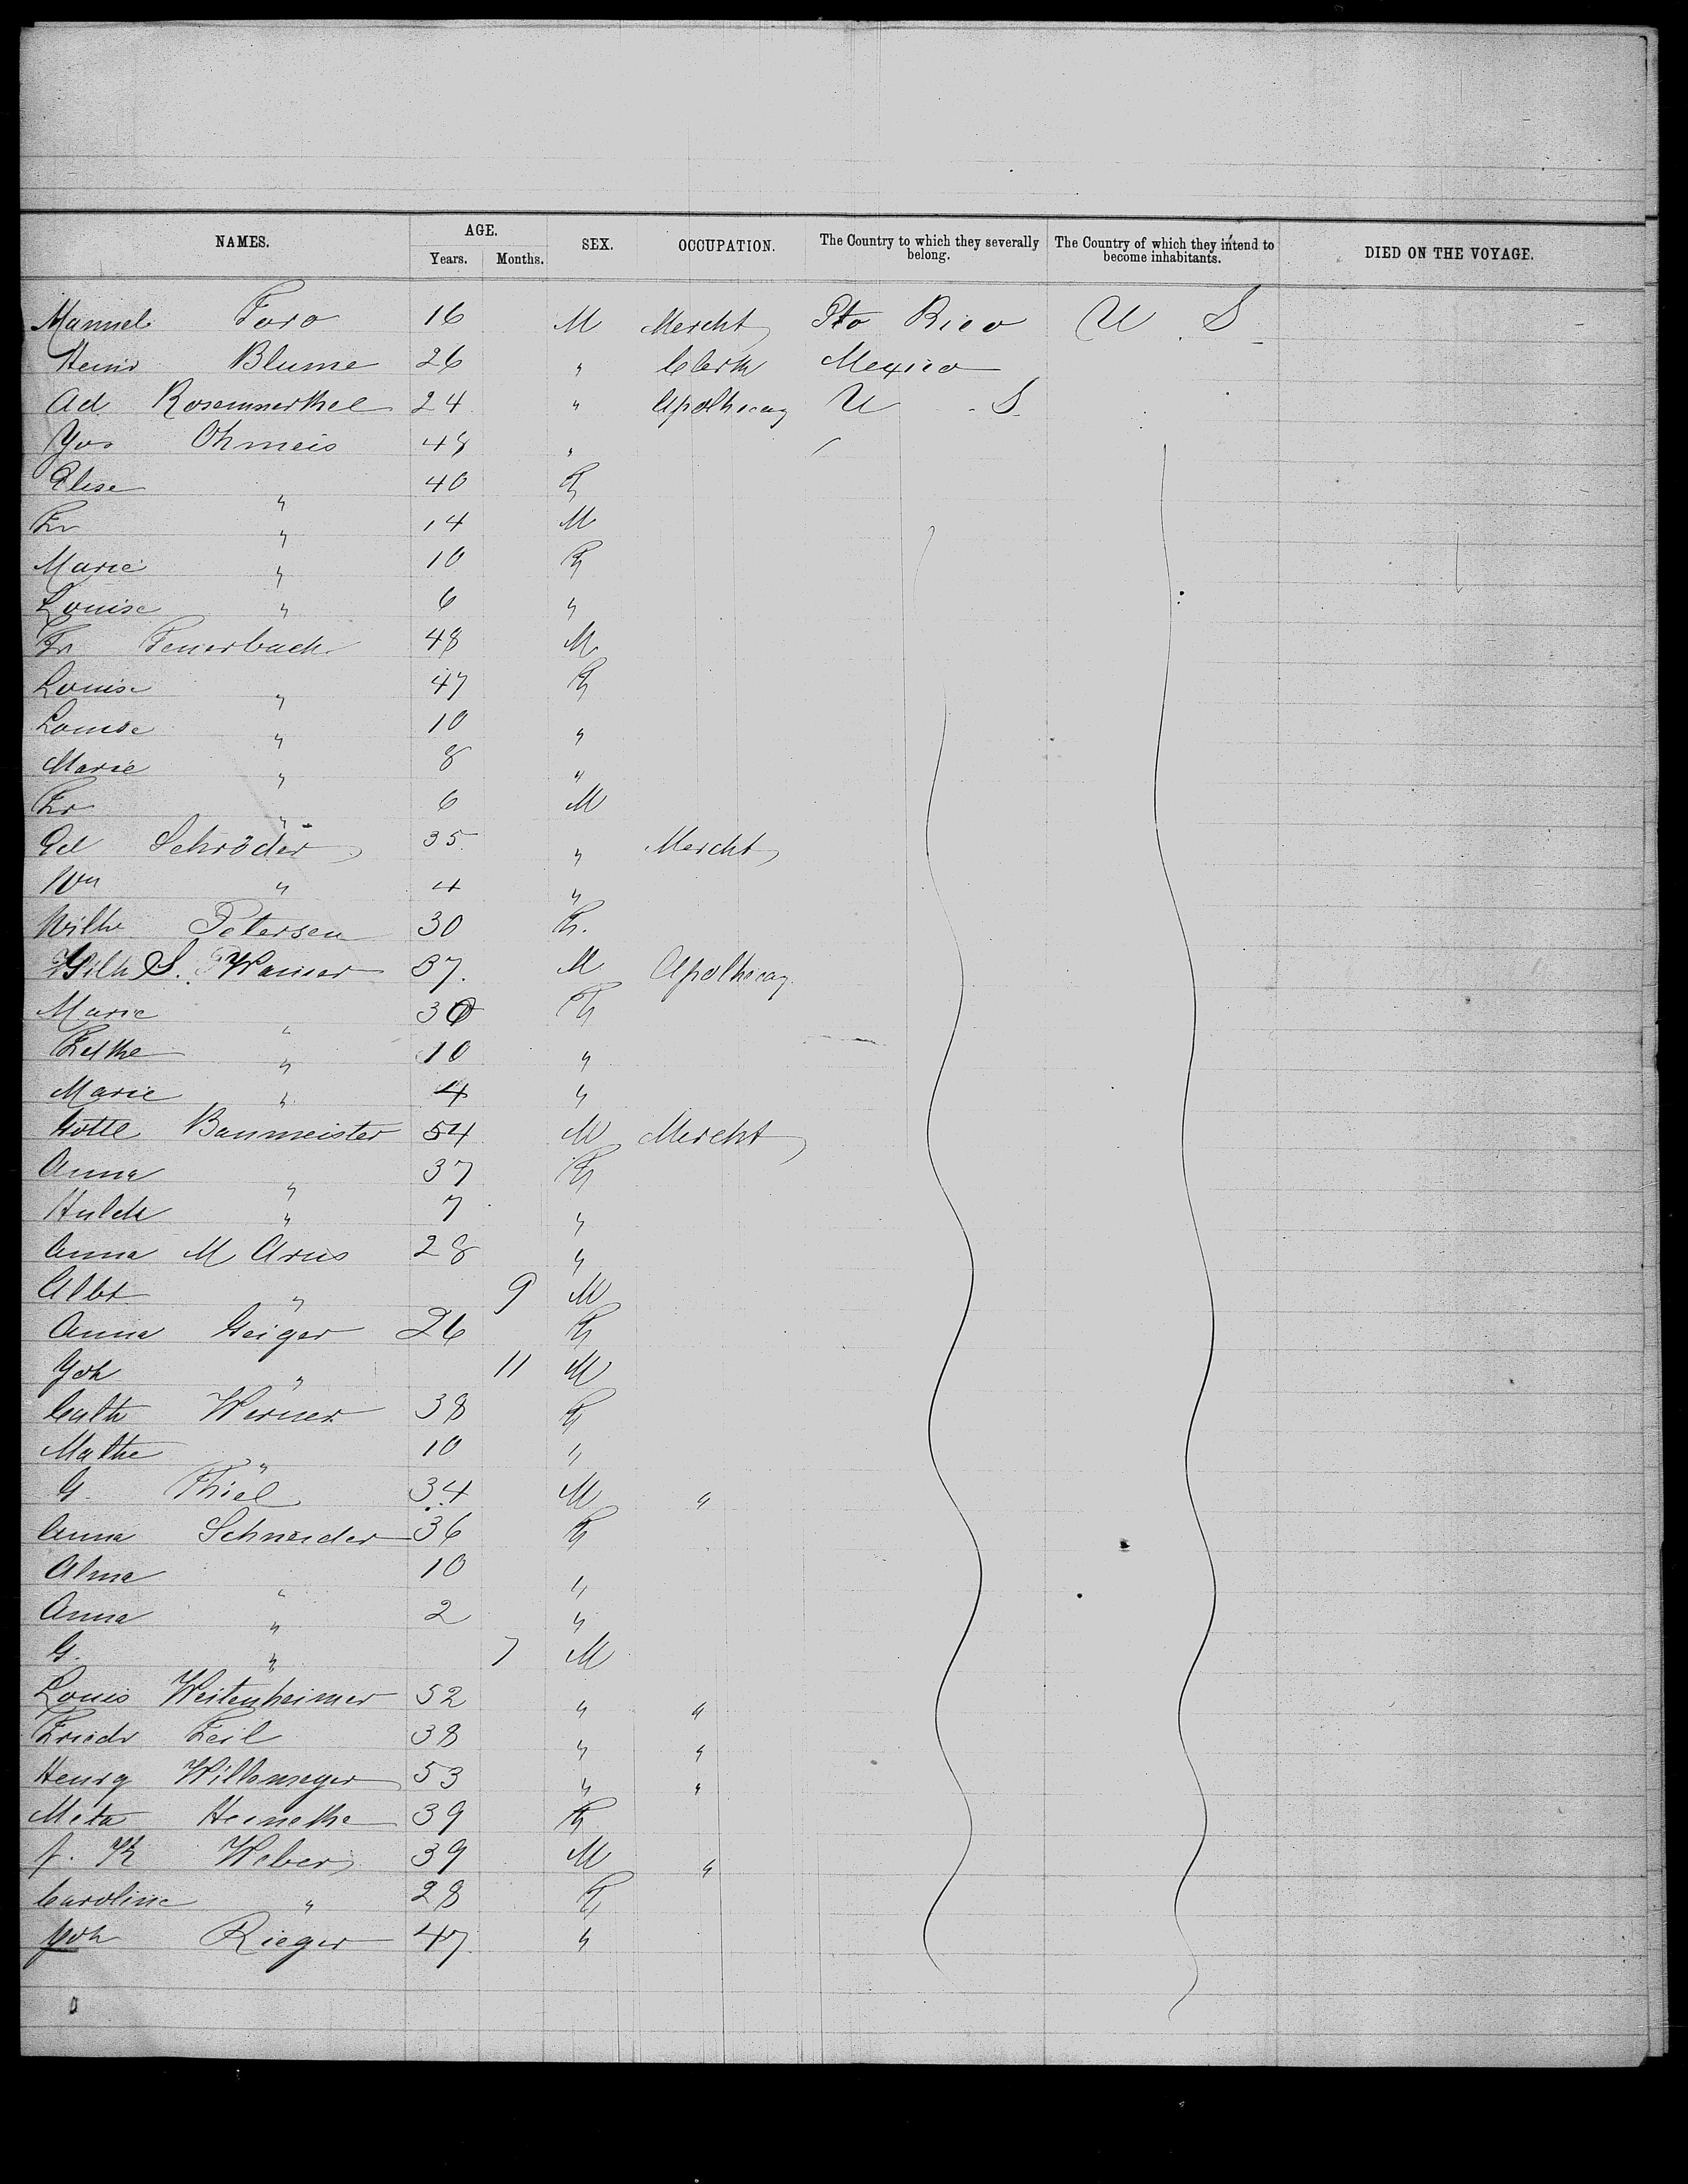 NAMES. AGE. SEX. OCCUPATION. The Country to which they severally belong. The Country of which they intend to become inhabitants. DIED ON THE VOYAGE.
Years. Months.
Manuel Toro 16 M Mercht Pto Rico U S
Heinr Blume 26 " Clerk Mexico
Ad 24 " Apothecay U S
Jos Ohmeis 48 "
Elise " 40 F
Fr " 14 M
Marie " 10 F
Louise " 6 "
Fr Feuerbach 48 M
Louise " 47 F
Louise " 10 "
Marie " 8 "
Fr " 6 M
Ed Schröder 35 " Mercht
Wm " 4 "
Wilhe Petersen 30 F.
Wilh S. 37. M Apothecay
Marie " 30 F
" 10 "
Marie " 4 "
Gottl Baumeister 54 M Mercht
Anna " 37 F
" 7 "
Anna M Arns 28 "
Albt " 9 M
Anna Geiger 26 F
Joh " 11 M
Cath Werner 38 F
Mathe " 10 "
G. Thiel 34 M "
Anna Schneider 36 F
Alma " 10 "
Anna " 2 "
G. " 7 M
Louis Weitenheimer 52 " "
Friedr Feil 38 " "
Henry 53 " "
Meta Heinethe 39 F
Weber 39 M "
Caroline " 28 F
Joh Rieger 47 "